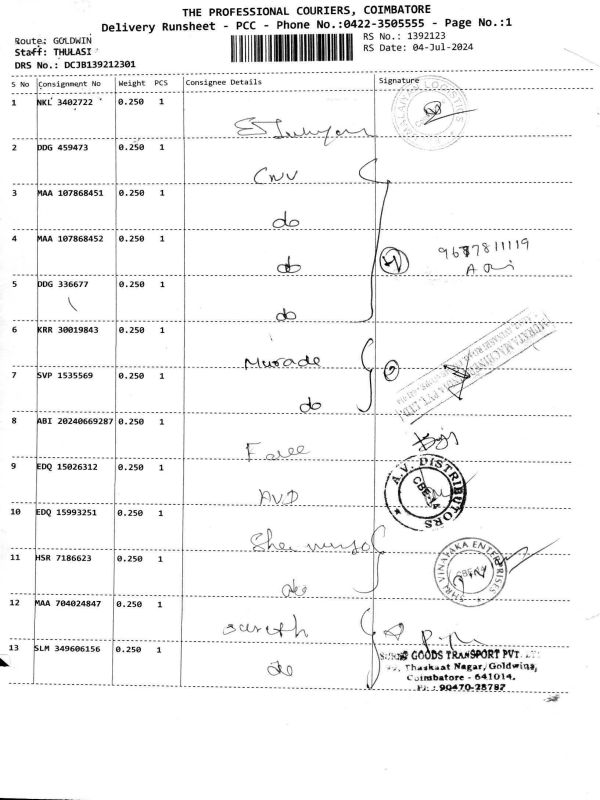 THE PROFESSIONAL COURIERS, COIMBATORE
Delivery Runsheet - PCC - Phone No.:0422-3505555 - Page No.:1
Route: GOLDWIN
Staff: THULASI
DRS No.: DCJB139212301
RS No.: 1392123
RS Date: 04-Jul-2024
S No Consignment No Weight PCS Consignee Details Signature
1 NKL 3402722 0.250 1
2 DDG 459473 0.250 1
CNV
3 MAA 107868451 0.250 1
do
4 MAA 107868452 0.250 1
do
9677811119
5 DDG 336677 0.250 1
do
6 KRR 30019843 0.250 1
Murade
7 SVP 1535569 0.250 1
do
8 ABI 20240669287 0.250 1
9 EDQ 15026312 0.250 1
AVD
A.V. DISTRIBUTORS
CBE-14
10 EDQ 15993251 0.250 1
11 HSR 7186623 0.250 1
do
SHRI VINAYAKA ENTERPRISES
CBE-14
12 MAA 704024847 0.250 1
Suresh
13 SLM 349606156 0.250 1
do
GOODS TRANSPORT PVT. LTD
Thaskaat Nagar, Goldwins,
Coimbatore - 641014.
Ph : 90470-28787